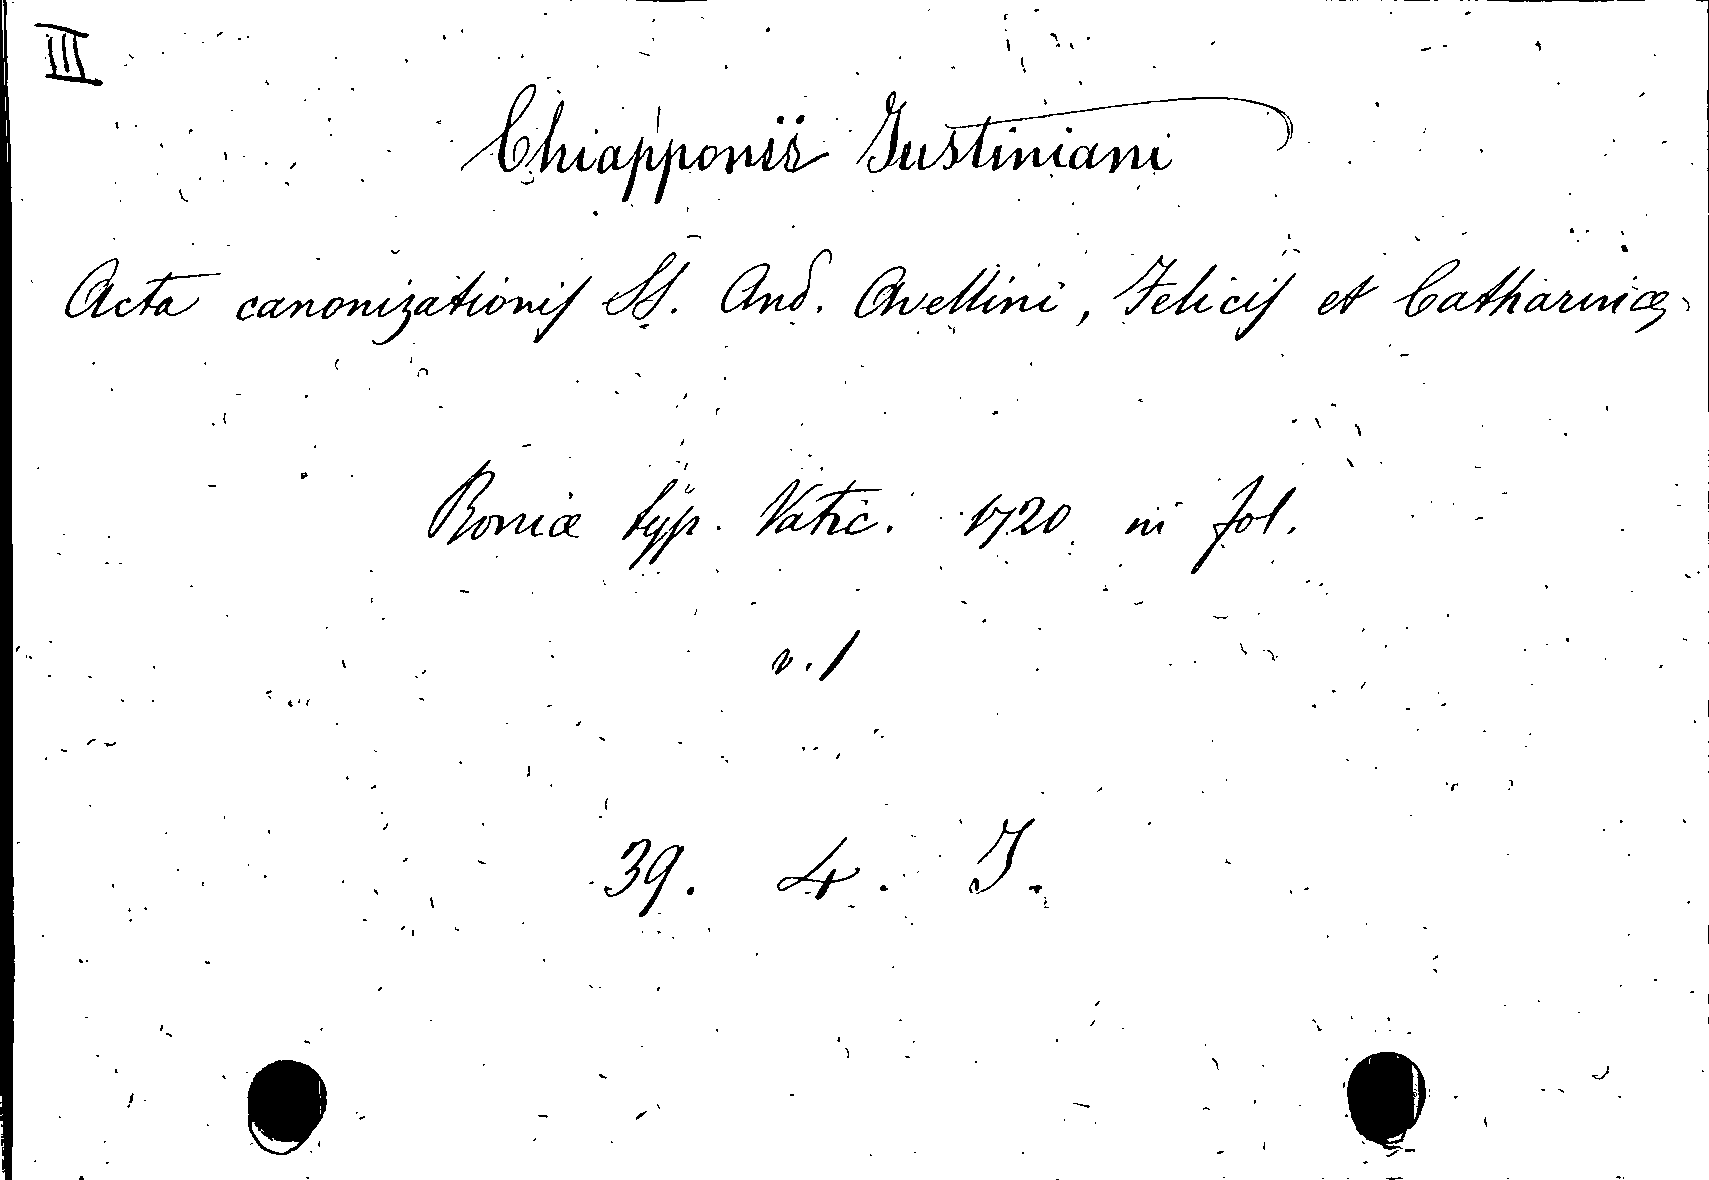 III
Chiapponii Justiniani
Acta canonizationis SS. And. Avellini, Felicis et Catharinæ
Romæ typ. Vatic. 1720 in fol.
v. 1
39. 4. J.